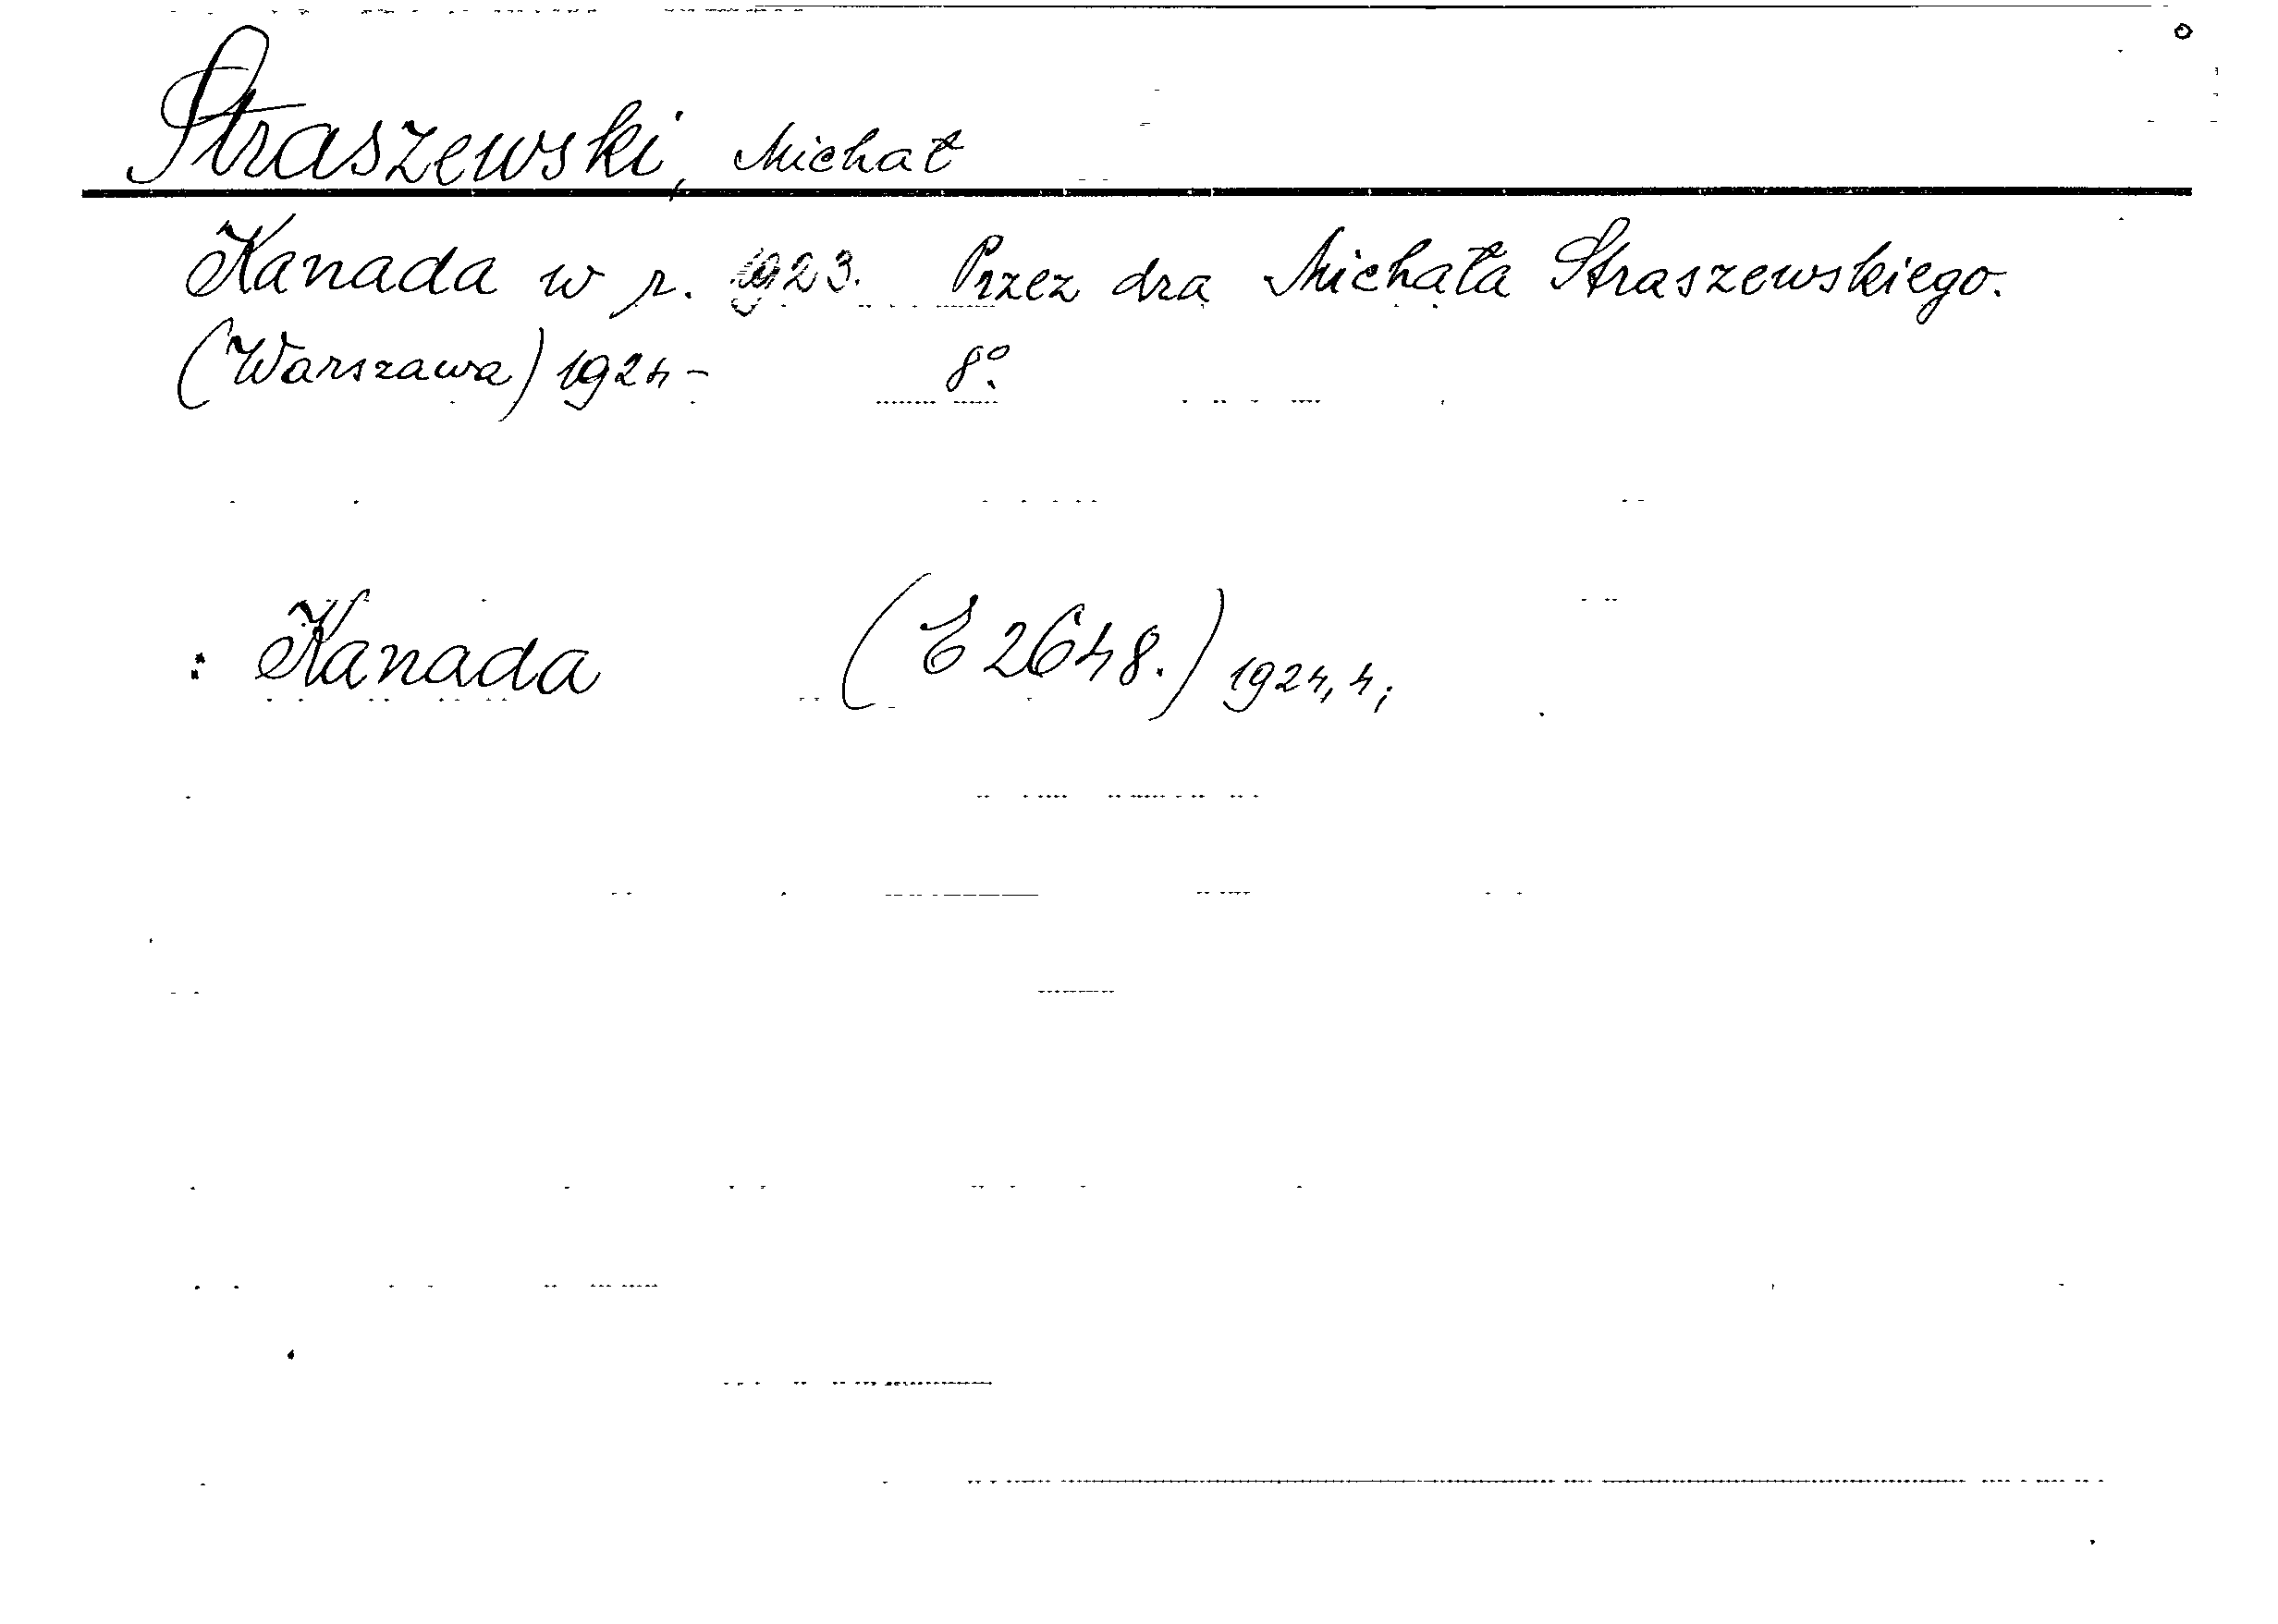 Straszewski, Michał
Kanada w r. 1923. Przez dra Michała Straszewskiego.
(Warszawa) 1924- 8º.
: Kanada (E 2648.) 1924, 4;